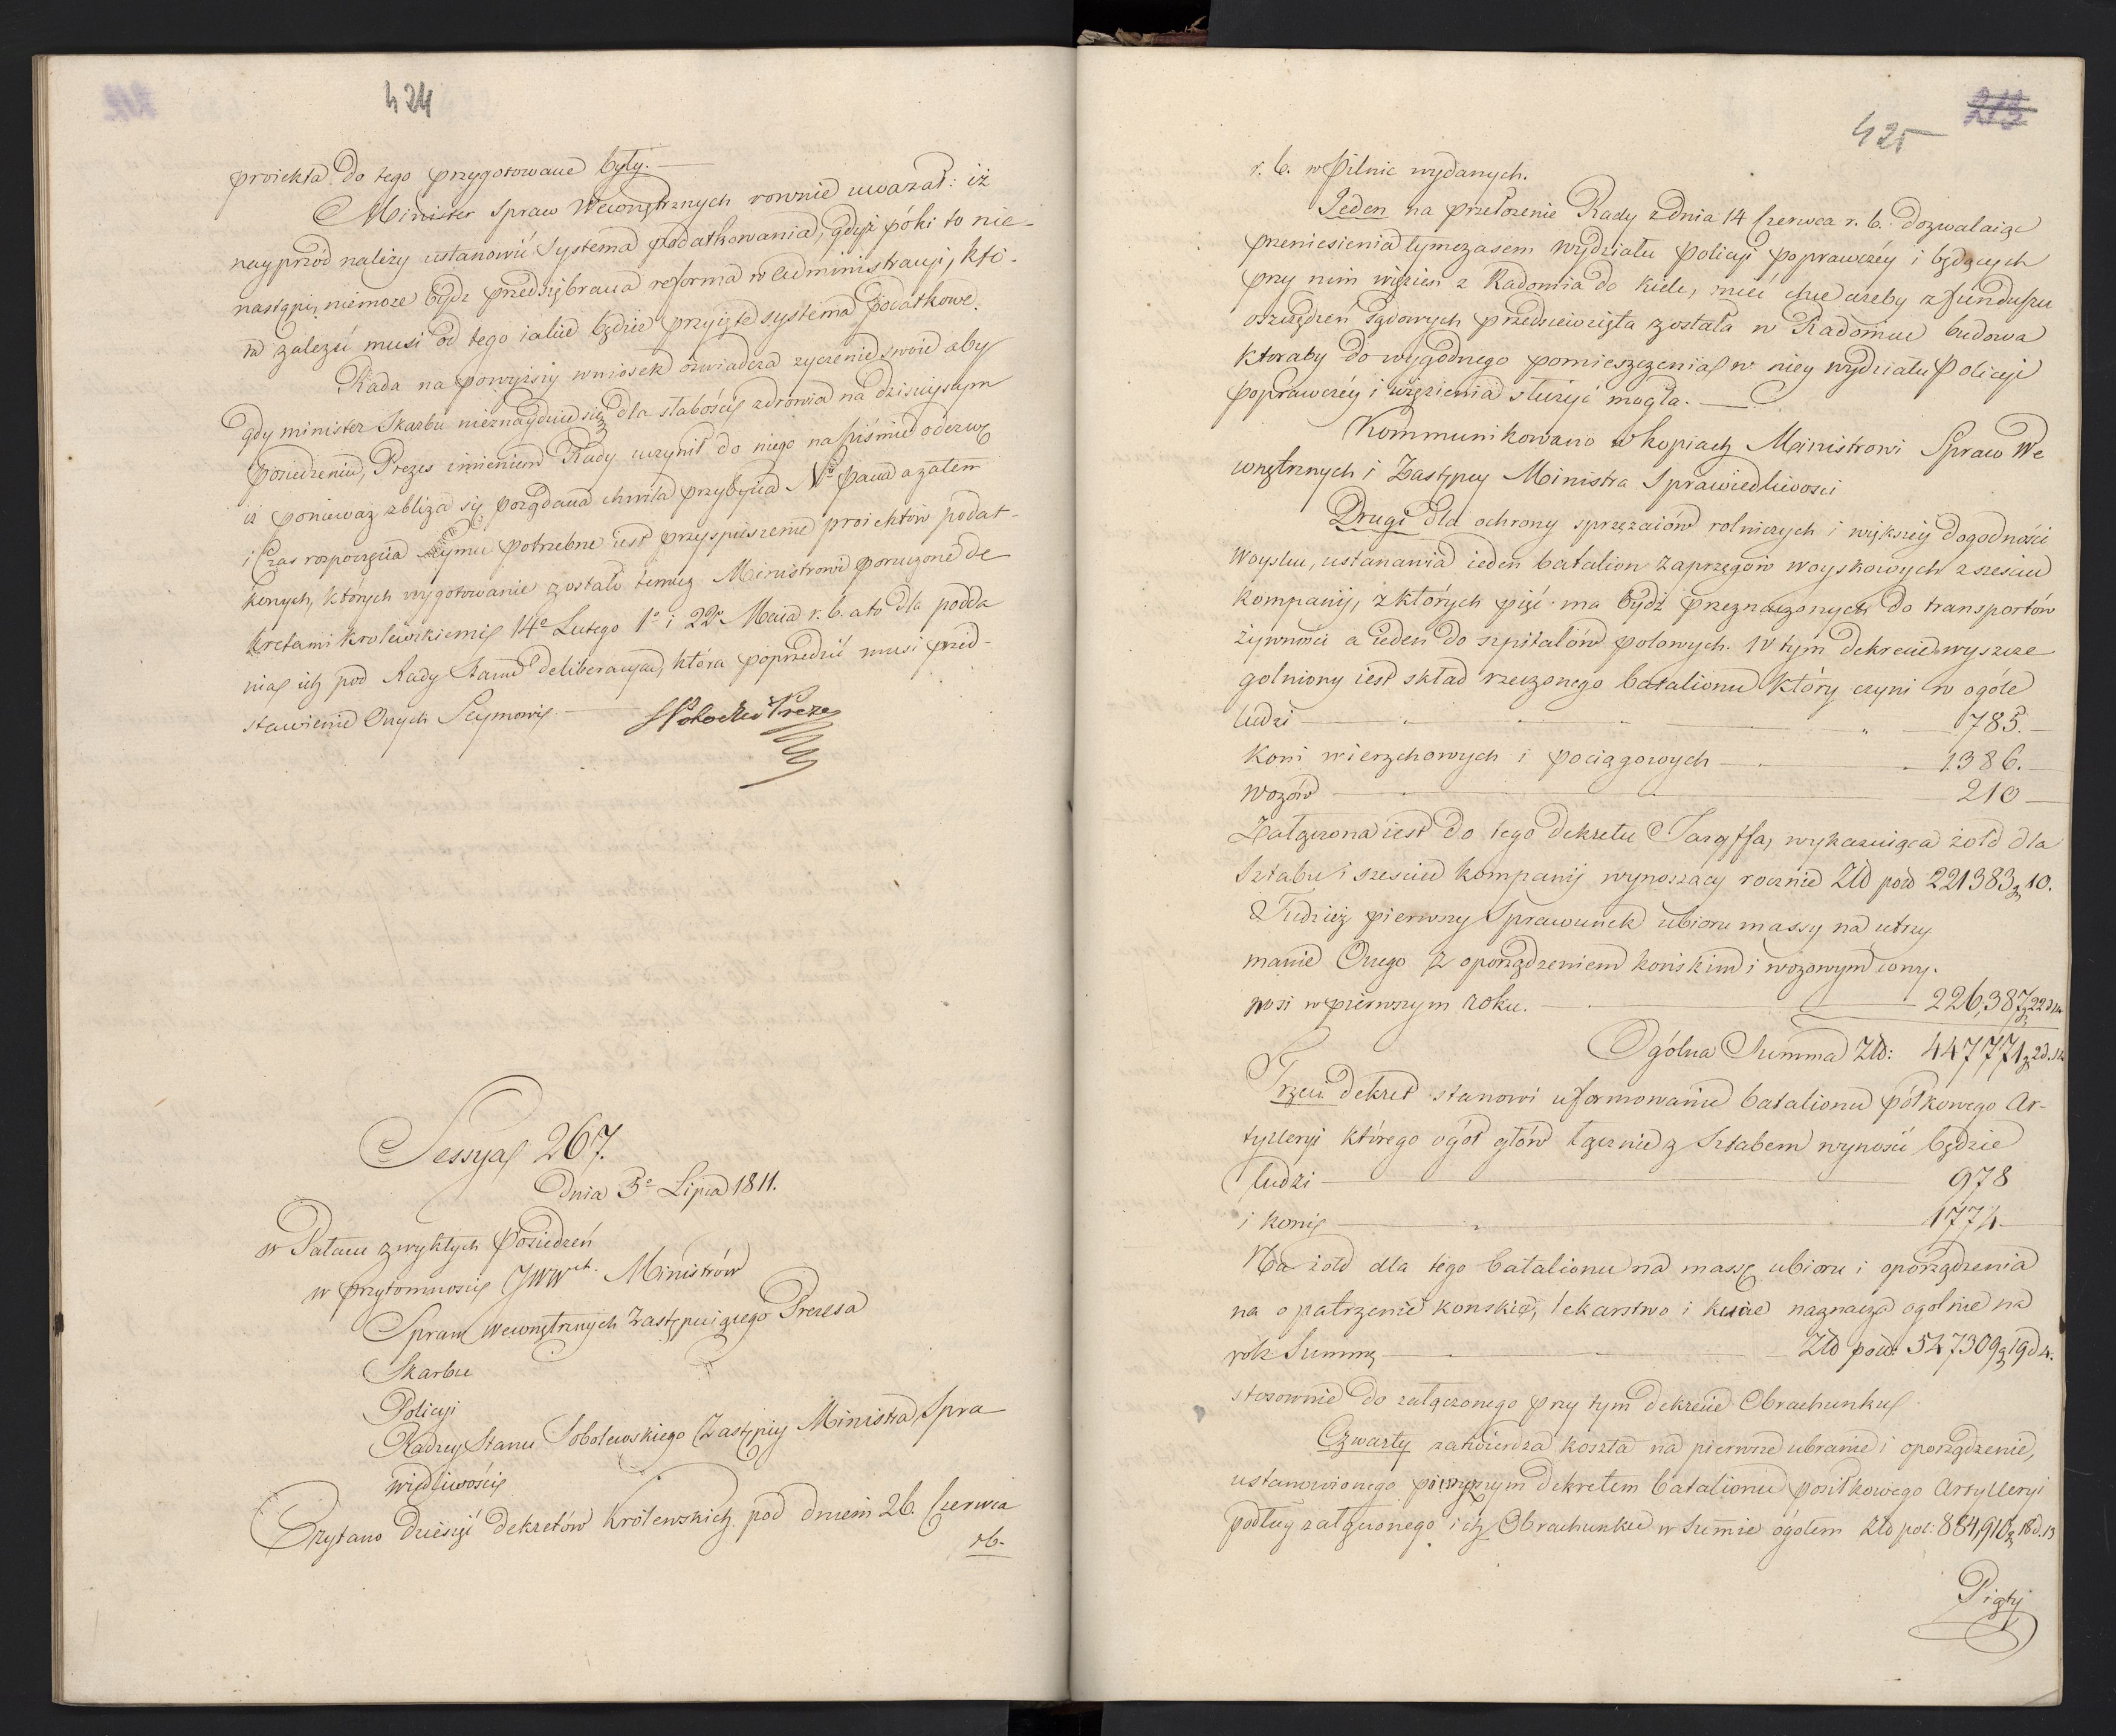 424
proiekta do tego przygotowane były.
Minister Spraw Wewnętrznych rownie uważał: iż
nayprzod należy ustanowić systema podatkowania, gdyż póki to nie-
nastąpi, niemoże bydź przedsiębrana reforma w Administracyi, któ-
ra zależeć musi od tego iakie będzie przyięte systema podatkowe.
Rada na powyższy wniosek oświadcza życzenie swoie aby
gdy minister Skarbu nieznayduie się dla słabości zdrowia na dzisieyszym
posiedzeniu, Prezes imieniem Rady uczynił do niego na piśmie odezwę
iż ponieważ zbliża się pożądana chwila przybycia Nº Pana a zatem
i czas rozpoczęcia Seymu potrzebne iest przyspieszenie proiektów podat-
kowych, których wygotowanie zostało temuż Ministrowi poruczone de
kretami Krolewskiemi 14º Lutego 1º i 22º Maia r. b. a to dla podda
nia ich pod Rady Stanu deliberacyą, która poprzedzić musi przed-
stawienie Onych Seymowi. SPotocki Prezes
Sessya 267.
Dnia 3º Lipca 1811.
w Pałacu zwykłych Posiedzeń
w przytomności JWWch. Ministrów
Spraw Wewnętrznych zastępuiącego Prezesa
Skarbu
Policyi
Radzcy Stanu Sobolewskiego Zastępcy Ministra Spra
wiedliwości
Czytano dziesięć dekretów Królewskich pod dniem 26. Czerwca
r b.
213
425
r. b. w Pilnic wydanych.
Jeden na przełożenie Rady z dnia 14 Czerwca r. b. dozwalaiąc
przeniesienia tymczasem wydziału policyi poprawczéy i będących
przy nim więzień z Radomia do Kielc, mieć chce ażeby z funduszu
oszczędzeń sądowych przedsiewzięta została w Radomiu budowa
ktoraby do wygodnego pomieszczenia w niey wydziału Policyi
poprawczéy i więzienia służyć mogła.
Kommunikowano w kopiach Ministrowi Spraw We
wnętrznych i Zastępcy Ministra Sprawiedliwosci
Drugi dla ochrony sprzężaiów rolniczych i większéy dogodności
Woysku, ustanawia ieden batalion zaprzęgów woyskowych z szesciu
kompanij, z których pięć ma bydź przeznaczonych do transportów
żywności a ieden do szpitalów polowych. W tym dekrecie wyszcze
golniony iest skład rzeczonego batalionu który czyni w ogóle
ludzi 785.
koni wierzchowych i pociągowych 1386.
wozów 210
Załączona iest do tego dekretu Taryffa, wykazuiąca żołd dla
Sztabu i sześciu kompanij wynoszący rocznie Złł pols 221383 g 10.
Tudzież pierwszy Sprawunek ubioru massy na utrzy
manie Onego z oporządzeniem końskim i wozowym wy-
nosi w pierwszym roku. 226,387 g 22 d 14
Ogólna Summa Złł: 447771 g 2 d. 14
Trzeci dekret stanowi uformowanie batalionu półkowego Ar-
tylleryi którego ogół głów łącznie z Sztabem wynosić będzie
ludzi 978
i koni 1774
Na żołd dla tego batalionu na massę ubioru i oporządzenia
na opatrzenie konskie, lekarstwo i kucie naznacza ogolnie na
rok Summę Złł pols: 547309 g 19 d 4.
stosownie do załączonego przy tym dekrecie Obrachunku.
Czwarty zatwierdza koszta na pierwsze ubranie i oporządzenie,
ustanowionego powyższym dekretem batalionu posiłkowego Artylleryi
podług załączonego ich Obrachunku w Summie ogółem Złł pol: 884,910 g 18 d. 13
Piąty